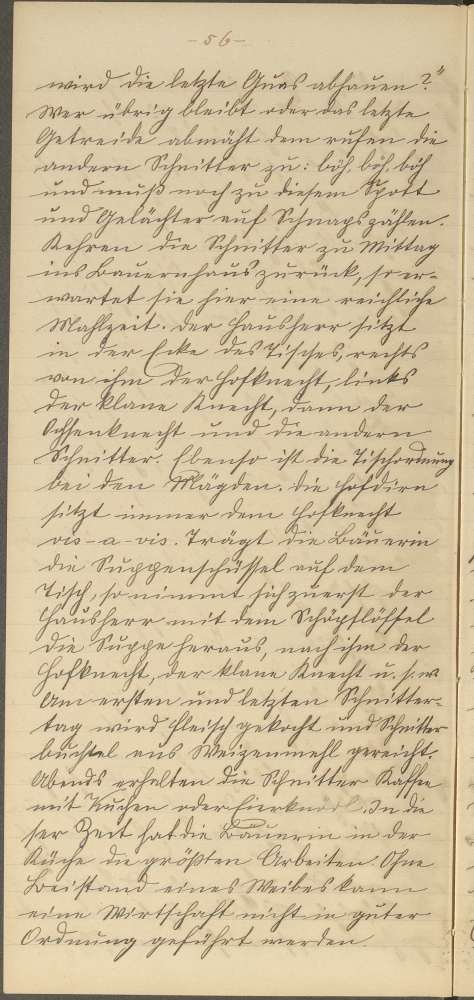 - 56 -
wird die letzte Guas abhauen?"
Wer übrig bleibt oder das letzte
Getreide abmäht dem rufen die
andern Schnitter zu: böh, böh, böh
und muß noch zu diesem Spott
und Gelächter auf Schnaps zahlen.
Kehren die Schnitter zu Mittag
ins Bauernhaus zurück, so er-
wartet sie hier eine reichliche
Mahlzeit. Der Hausherr sitzt
in der Ecke des Tisches, rechts
von ihm der Hofknecht, links
der klane Knecht, dann der
Ochsenknecht und die andern
Schnitter. Ebenso ist die Tischordnung
bei den Mägden. Die Hofdirn
sitzt immer dem Hofknecht
vis-a-vis. Trägt die Bäuerin
die Suppenschüssel auf dem
Tisch, so nimmt sich zuerst der
Hausherr mit dem Schöpflöffel
die Suppe heraus, nach ihm der
Hofknecht, der klane Knecht u. s. w.
Am ersten und letzten Schnitter-
tag wird Fleisch gekocht und Schnitter
buchtel aus Weizenmehl gereicht.
Abends erhalten die Schnitter Kaffee
mit Kuchen oder Eierknödl. In die
ser Zeit hat die Bäuerin in der
Küche die größten Arbeiten. Ohne
Beistand eines Weibes kann
eine Wirtschaft nicht in guter
Ordnung geführt werden.